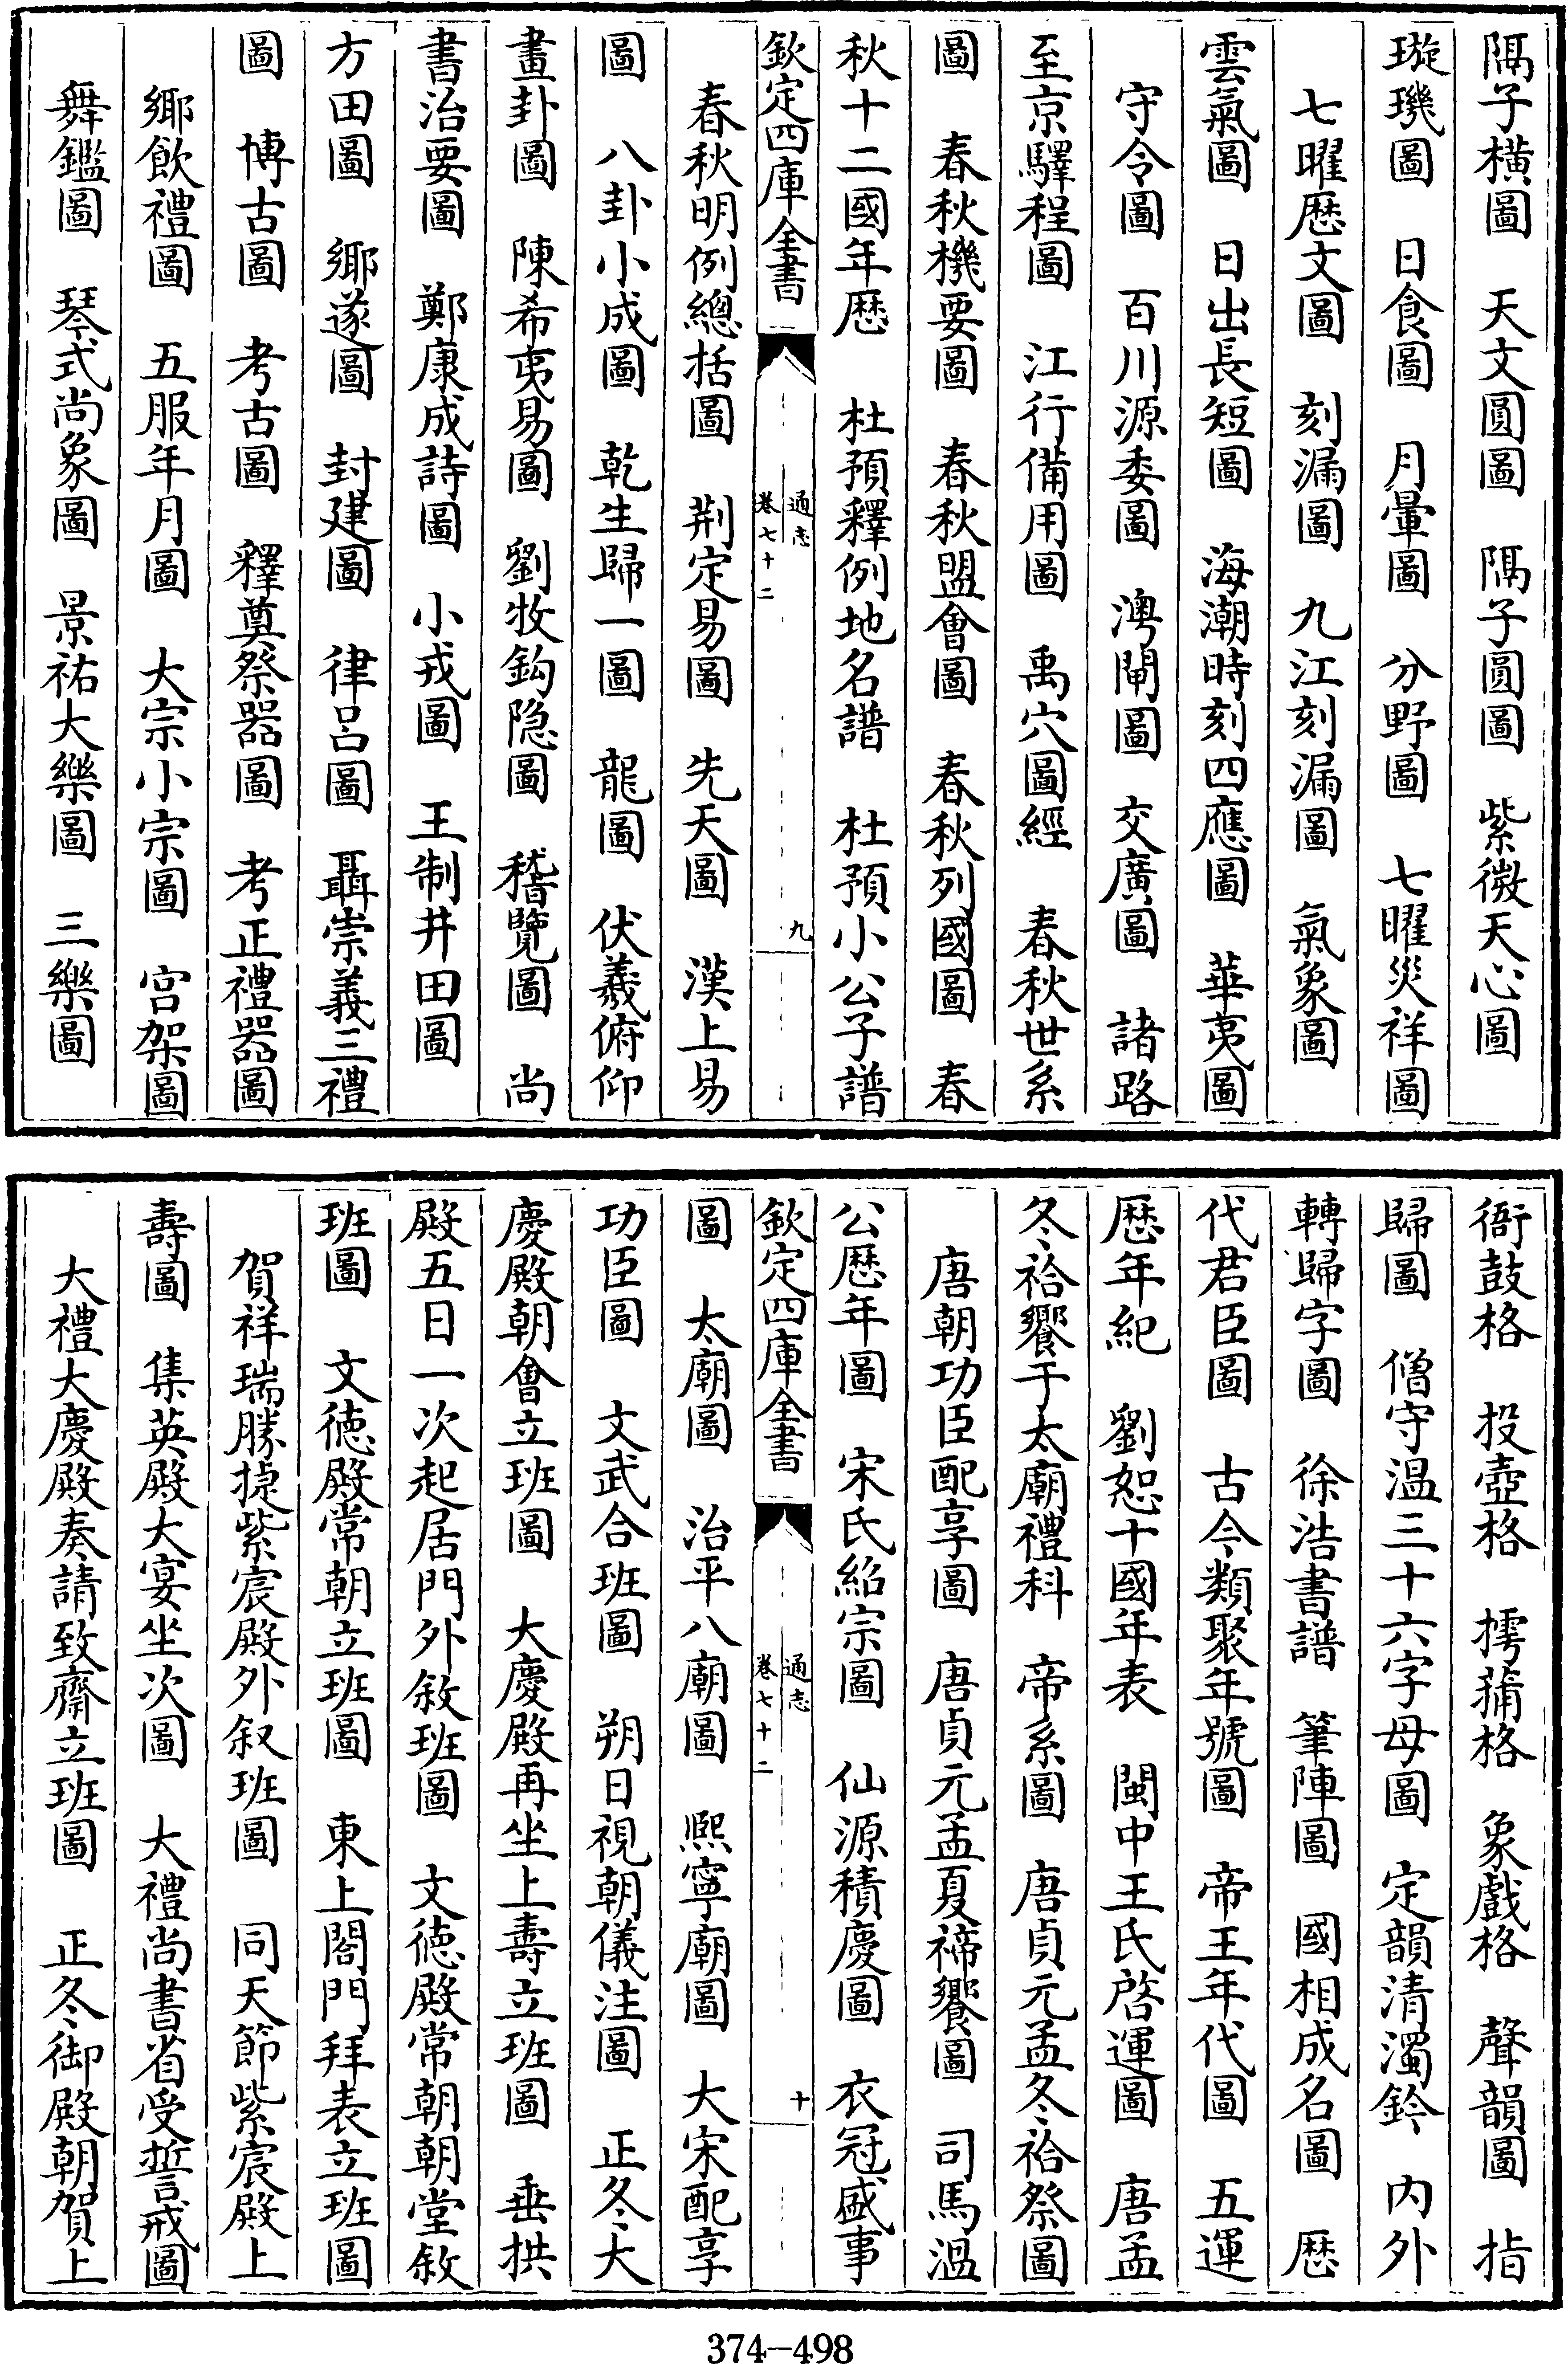 隅子横圖　天文圓圖　隅子圓圖　紫微天心圖
璇璣圖　日食圖　月暈圖　分野圖　七曜災祥圖
七曜厯文圖　刻漏圖　九江刻漏圖　氣象圖
雲氣圖　日出長短圖　海潮時刻四應圖　華夷圖
守令圖　百川源委圖　澚閘圖　交廣圖　諸路
至京驛程圖　江行備用圖　禹穴圖經　春秋世系
圖　春秋機要圖　春秋盟會圖　春秋列國圖　春
秋十二國年厯　杜預釋例地名譜　杜預小公子譜
欽定四庫全書　通志　卷七十二　九
春秋明例總括圖　荆定易圖　先天圖　漢上易
圖　八卦小成圖　乾生歸一圖　龍圖　伏羲俯仰
畫卦圖　陳希夷易圖　劉牧鈎隐圖　稽覽圖　尚
書治要圖　鄭康成詩圖　小戎圖　王制井田圖
方田圖　鄉遂圖　封建圖　律吕圖　聶崇義三禮
圖　博古圖　考古圖　釋奠祭器圖　考正禮器圖
鄉飲禮圖　五服年月圖　大宗小宗圖　宫架圖
舞鑑圖　琴式尚象圖　景祐大樂圖　三樂圖
衙鼓格　投壺格　摴蒱格　象戲格　聲韻圖　指
歸圖　僧守温三十六字母圖　定韻清濁鈐　内外
轉歸字圖　徐浩書譜　筆陣圖　國相成名圖　厯
代君臣圖　古今類聚年號圖　帝王年代圖　五運
厯年紀　劉恕十國年表　閩中王氏啓運圖　唐孟
冬祫饗于太廟禮科　帝系圖　唐貞元孟冬祫祭圖
唐朝功臣配享圖　唐貞元孟夏禘饗圖　司馬温
公厯年圖　宋氏紹宗圖　仙源積慶圖　衣冠盛事
欽定四庫全書　通志　卷七十二　十
圖　太廟圖　治平八廟圖　熙寧廟圖　大宋配享
功臣圖　文武合班圖　朔日視朝儀注圖　正冬大
慶殿朝會立班圖　大慶殿再坐上壽立班圖　垂拱
殿五日一次起居門外敘班圖　文徳殿常朝朝堂敘
班圖　文徳殿常朝立班圖　東上閤門拜表立班圖
賀祥瑞勝捷紫宸殿外叙班圖　同天節紫宸殿上
壽圖　集英殿大宴坐次圖　大禮尚書省受誓戒圖
大禮大慶殿奏請致齋立班圖　正冬御殿朝賀上
374—498